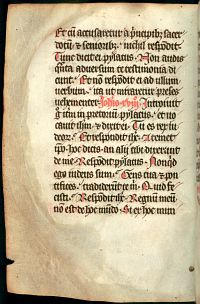 Et cū accusaretur a prīcipibꝫ sacer
dotū ⁊ seniorib; nichil respōdit
Tunc dicit ei pylatus Non audis
quāta aduersum te testimonia di
cunt Et nō respōdit ei ad ullum
uerbum ita ut miraretur preses
uehementer Iohis xviij Introiuit
g̅ it̄m in pretoriū pylatus ⁊ uo
cauit ih̄m ⁊ dixit ei Tu es rex iu
deoꝝ Et respondit ih̄c A temet
ip̄o hoc dicis an alij tibi dixerunt
de me Respōdit pylatus Nūq̄d
ego iudeus sum Gens tua ⁊ pon
tifices tradiderūt te m̄ Quid fe
cisti Respōdit ih̄c Regnū meū
nō est de hoc mūdo Si ex hoc mun